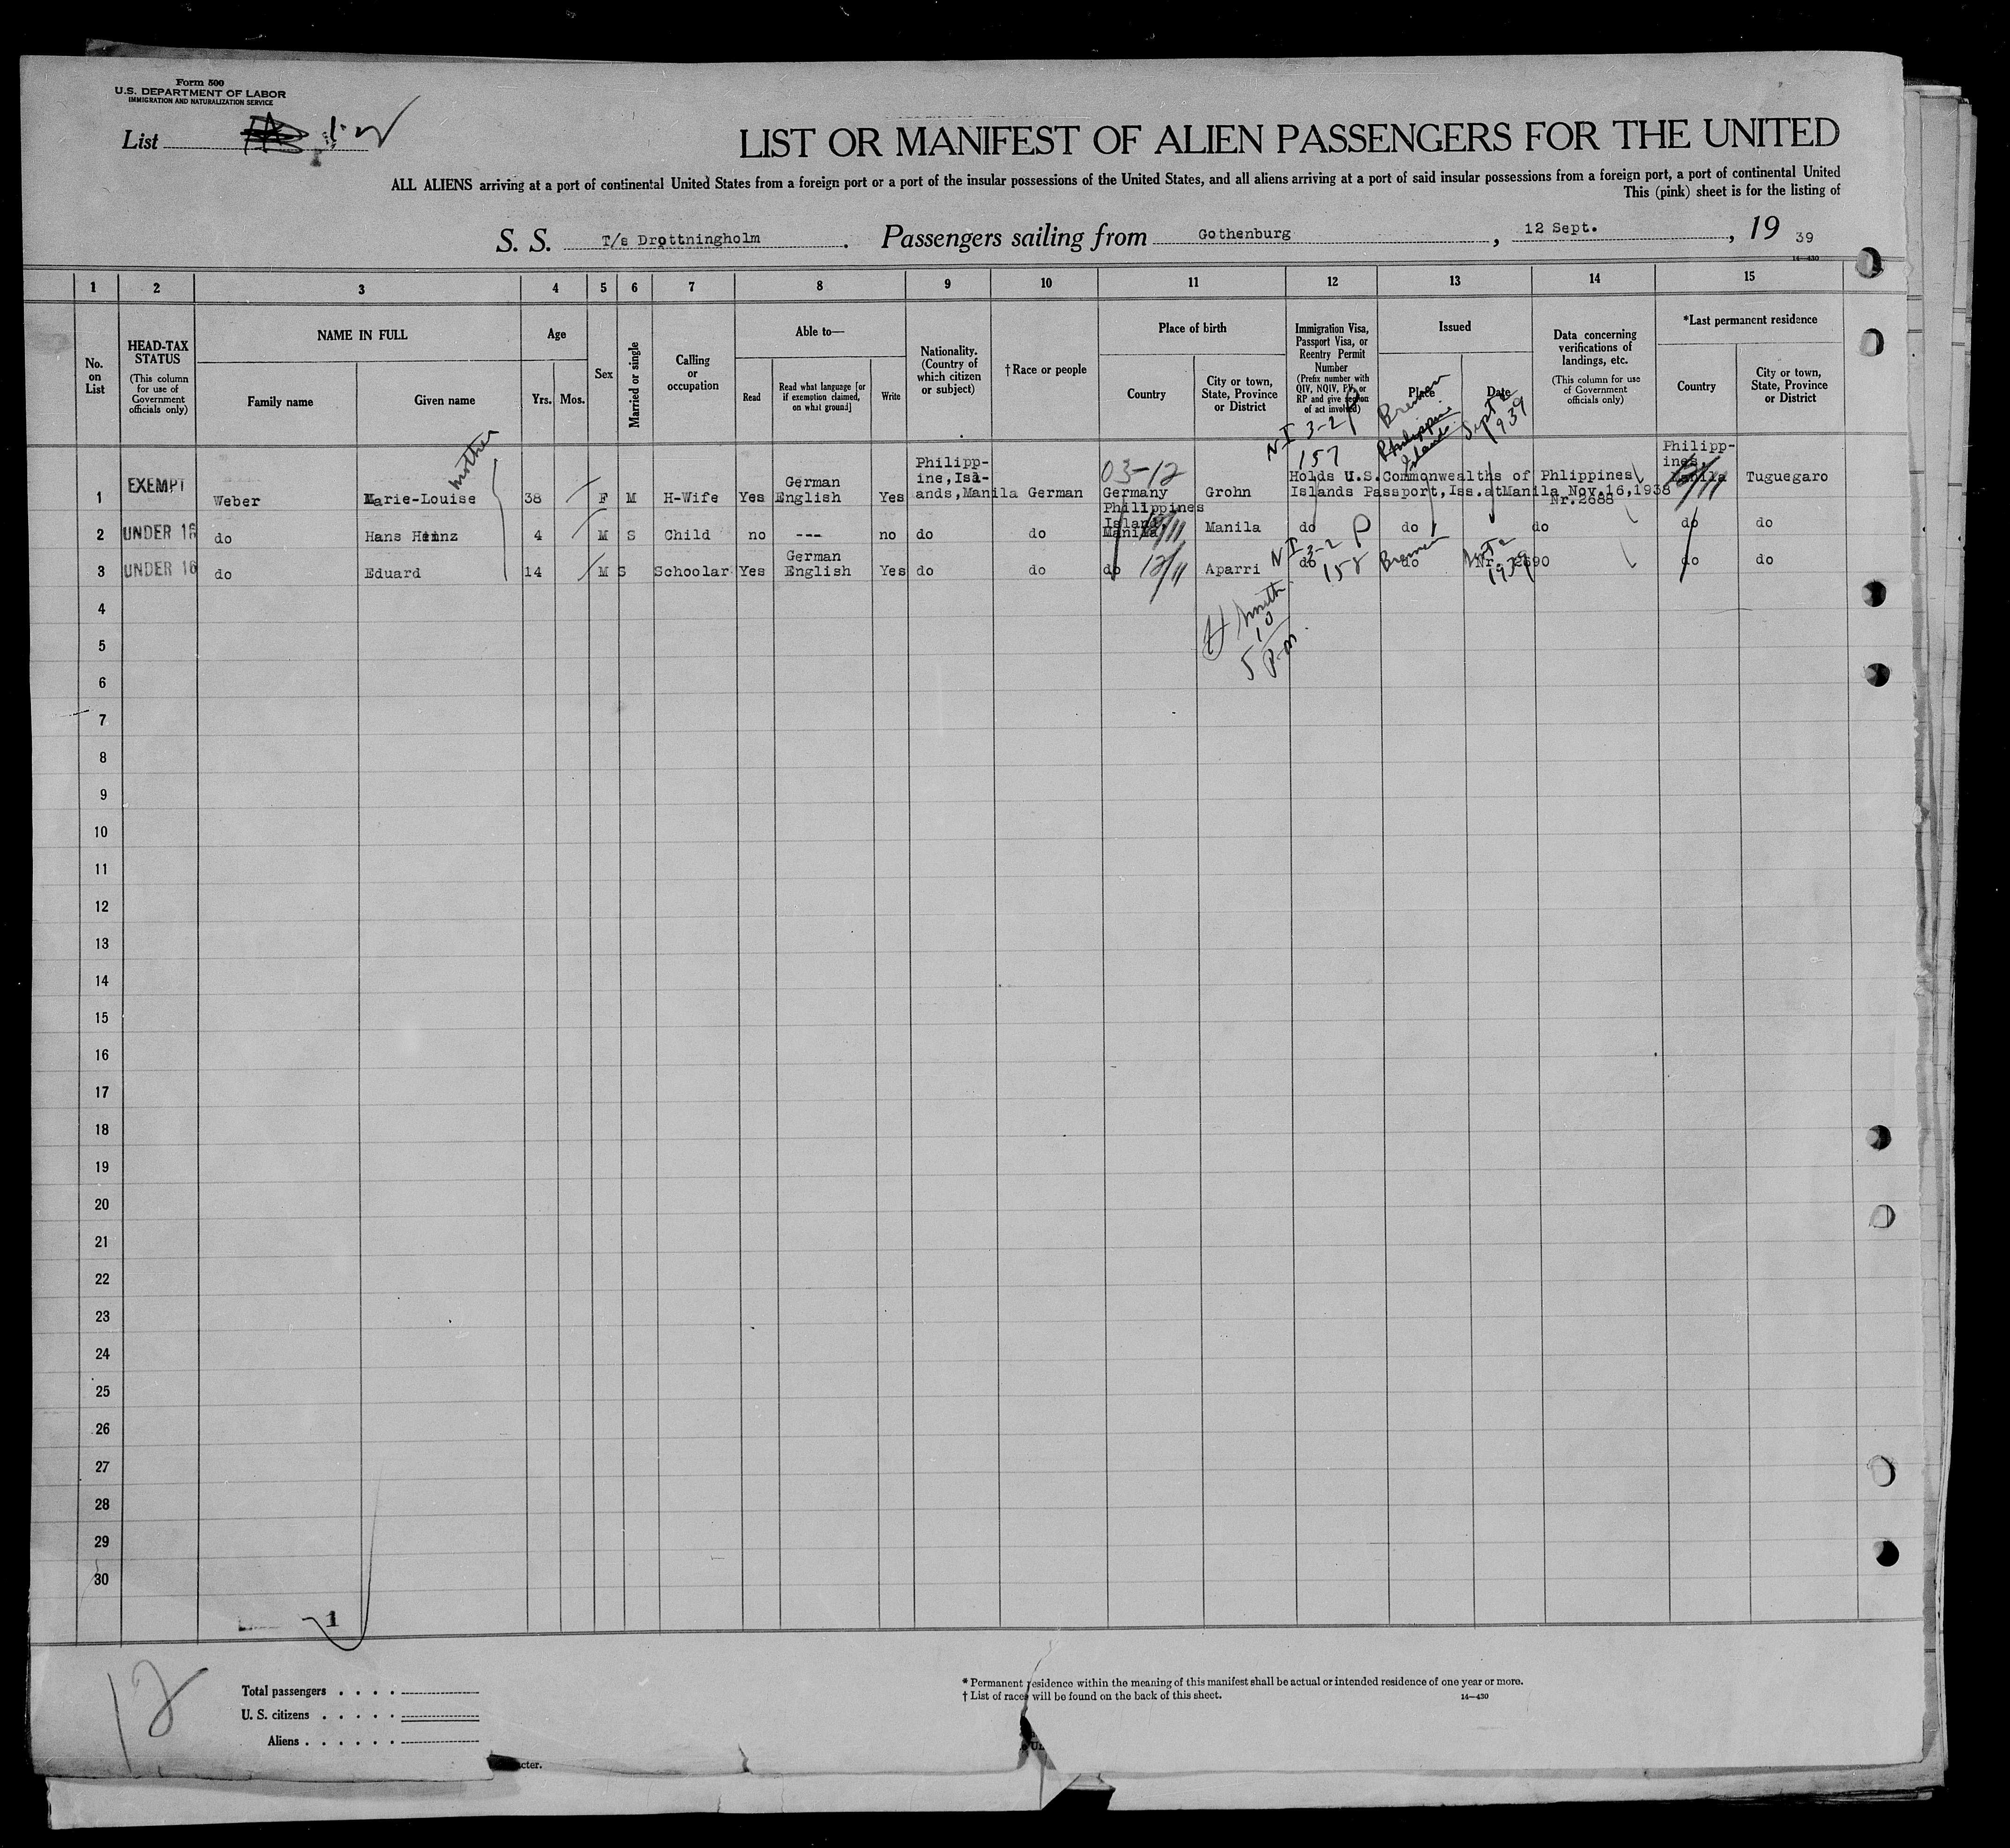 Form 500
U.S. DEPARTMENT OF LABOR
IMMIGRATION AND NATURALIZATION SERVICE
List
LIST OR MANIFEST OF ALIEN PASSENGERS FOR THE UNITED
ALL ALIENS arriving at a port of continental United States from a foreign port or a port of the insular possessions of the United States, and all aliens arriving at a port of said insular possessions from a foreign port, a port of continental United
This (pink) sheet is for the listing of
S. S. T/s Drottningholm. Passengers sailing from Gothenburg, 12 Sept., 19 39
14—430
1 2 3 4 5 6 7 8 9 10 11 12 13 14 15
No. on List
HEAD-TAX STATUS
(This column for use of Government officials only)
NAME IN FULL
Family name
Given name
Age
Yrs. Mos.
Sex
Married or single
Calling or occupation
Able to—
Read
Read what language [or if exemption claimed, on what ground]
Write
Nationality. (Country of which citizen or subject)
†Race or people
Place of birth
Country
City or town, State, Province or District
Immigration Visa, Passport Visa, or Reentry Permit Number
(Prefix number with QIV, NQIV, PV, or RP and give section of act involved)
Issued
Place
Date
Data concerning verifications of landings, etc.
(This column for use of Government officials only)
*Last permanent residence
Country
City or town, State, Province or District
mother
NI 3-2 P Bremen Sept 2 1939
157 Philippine Islands
03-12
1 EXEMPT Weber Marie-Louise 38 F M H-Wife Yes German English Yes Philipp-ine,Isl-ands,Manila German Germany Grohn Holds U.S.Commonwealths of Phlippines Islands Passport,Iss.atManila Nov.16,1938 Nr.2688 Philipp-ines, Manila 12/11 Tuguegaro
2 UNDER 16 do Hans Heinz 4 M S Child no --- no do do Philippines Island, Manila 12/11 Manila do P do do do do
3 UNDER 16 do Eduard 14 M S Schoolar Yes German English Yes do do do 12/11 Aparri do do Nr. 2690 do do
NI 3-2 158 Bremen Sept 2 1939
Smith
10
5 P.M.
4
5
6
7
8
9
10
11
12
13
14
15
16
17
18
19
20
21
22
23
24
25
26
27
28
29
30
1
12
Total passengers . . . .
U. S. citizens . . . . .
Aliens . . . . . .
* Permanent residence within the meaning of this manifest shall be actual or intended residence of one year or more.
† List of races will be found on the back of this sheet.
14—430
cter.